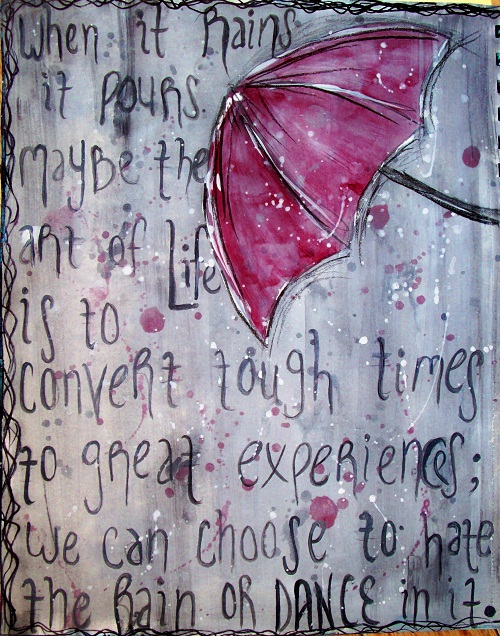 When it Rains
it pours.
maybe the
art of Life
is to
convert tough times
to great experiences;
we can choose to hate
the Rain OR DANCE in it.